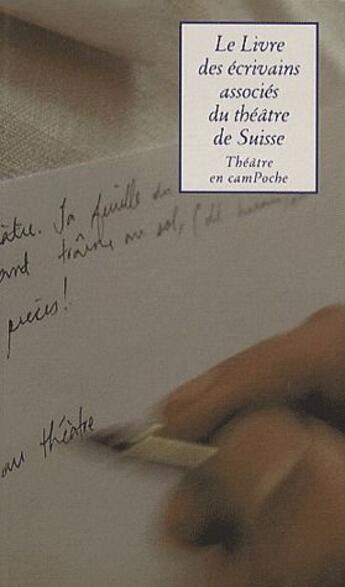 Le Livre
des écrivains
associés
du théâtre
de Suisse
Théâtre
en camPoche
âtre. Ta feuille du
ont traîné au sol, (de
pièces!
au théâtre